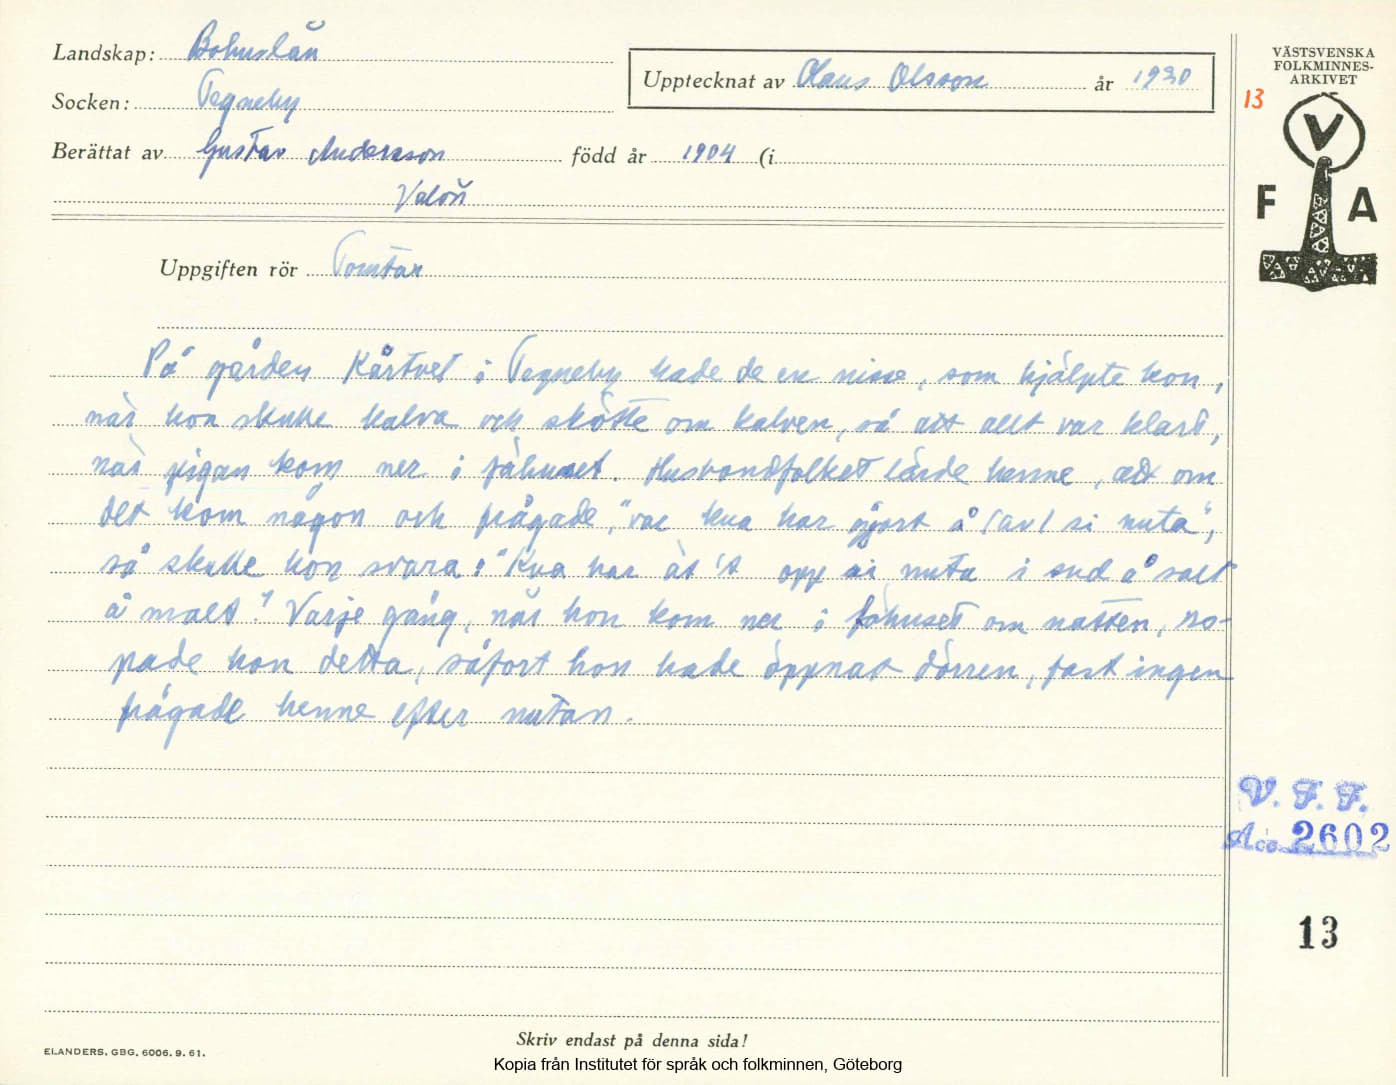 Landskap: Bohuslän
Socken: Tegneby
Upptecknat av Claus Olsson år 1930
Berättat av Gustav Andersson född år 1904 (i
Valön
VÄSTSVENSKA
FOLKMINNES-
ARKIVET
13
V
F A
Uppgiften rör Tomtar
På gården Kårtvet i Tegneby hade de en nisse, som hjälpte kon,
när hon skulle kalva och skötte om kalven, så att allt var klart,
när pigan kom ner i fähuset. Husbondfolket lärde henne, att om
det kom någon och frågade, "var kua har gjort å (av) si nuta",
så skulle hon svara: "Kua har ät 't opp si nuta i sud å salt
å malt." Varje gång, när hon kom ner i fähuset om natten, ro-
pade hon detta, såfort hon hade öppnat dörren, fast ingen
frågade henne efter nutan.
V. F. F.
Acc. 2602
13
Skriv endast på denna sida!
ELANDERS, GBG, 6006. 9. 61.
Kopia från Institutet för språk och folkminnen, Göteborg